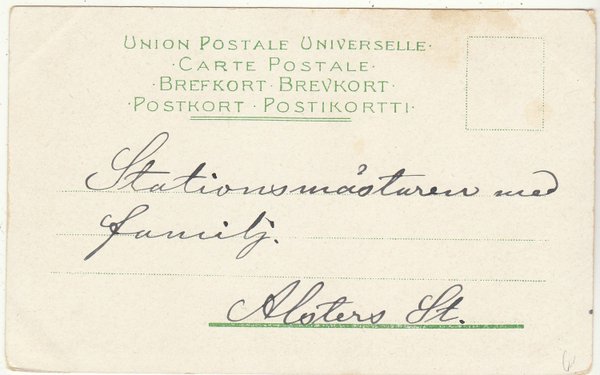 UNION POSTALE UNIVERSELLE·
·CARTE POSTALE·
·BREFKORT·BREVKORT·
·POSTKORT·POSTIKORTTI·
Stationsmästaren med
familj.
Alsters St.